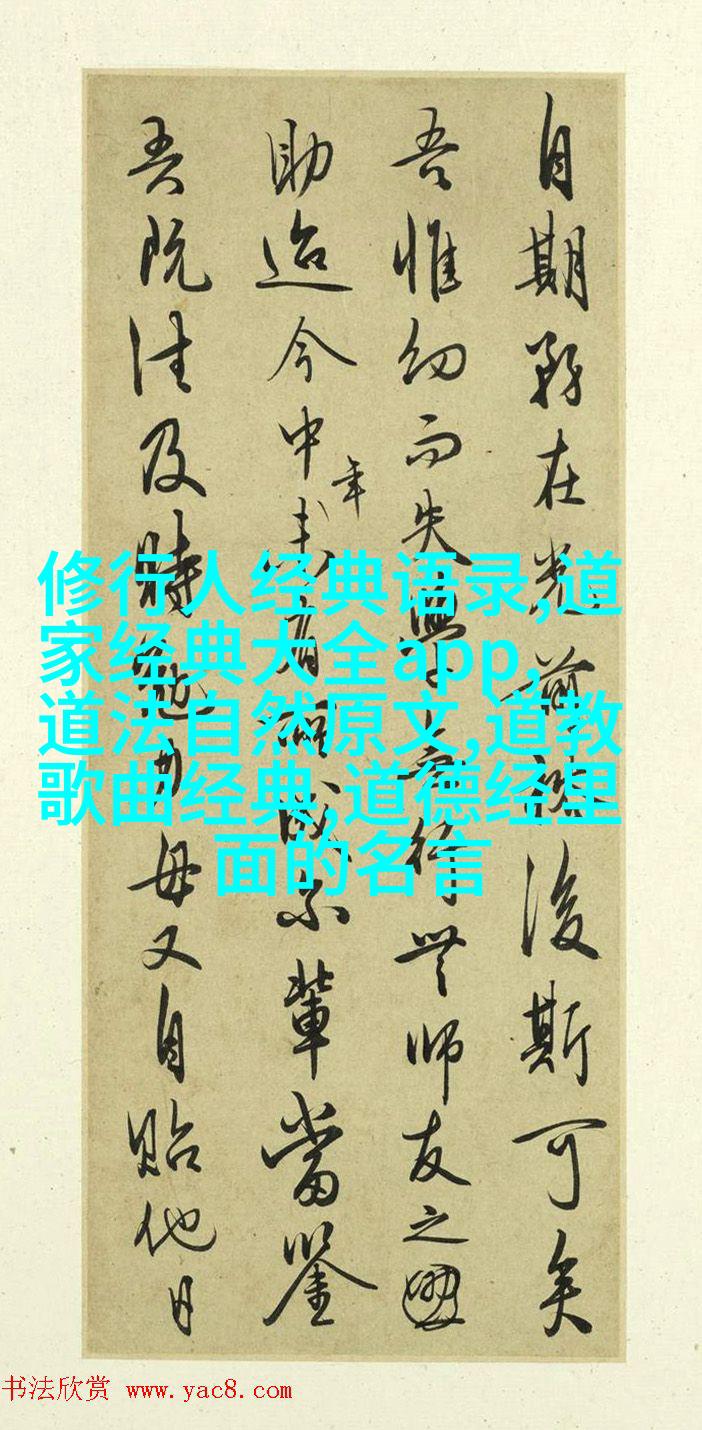 自期務在光前裕後斯可矣
吾惟幼而失學無行無師友之
助迨今中年未有所成尔輩當鑒
吾既往及時勉力毋又自貽他日
修行人经典语录,道
家经典大全app,
道法自然原文,道教
歌曲经典,道德经里
面的名言
书法欣赏 www.yac8.com